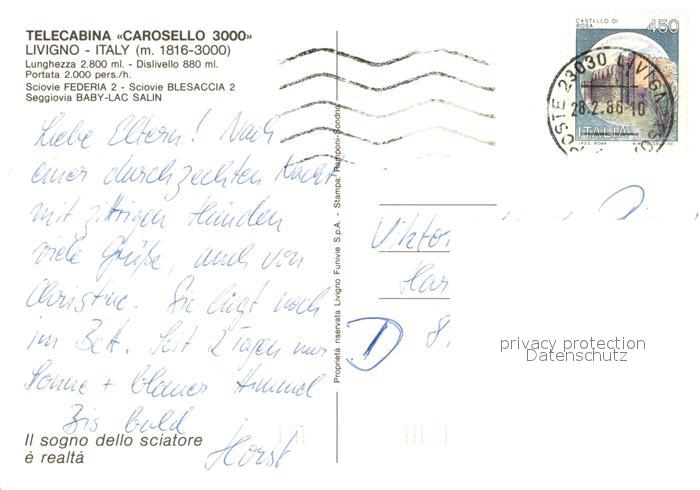 TELECABINA «CAROSELLO 3000»
LIVIGNO - ITALY (m. 1816-3000)
Lunghezza 2.800 ml. - Dislivello 880 ml.
Portata 2.000 pers./h.
Sciovie FEDERIA 2 - Sciovie BLESACCIA 2
Seggiovia BABY-LAC SALIN
Liebe Eltern! Nach
einer durchzechten Nacht
mit zittrigen Händen
viele Grüße, auch von
Christine. Sie liegt noch
im Bett. Seit 2 Tagen nur
Sonne + blauer Himmel
Bis bald
Horst
Il sogno dello sciatore
è realtà
Proprietà riservata Livigno Funivie S.p.A. - Stampa: Ramponi-Sondrio
CASTELLO DI
BOSA
450
ITALIA
I.P.Z.S. ROMA
POSTE 23030 LIVIGNO
28.2.86-10
Viktor
Har
8.
D
privacy protection
Datenschutz